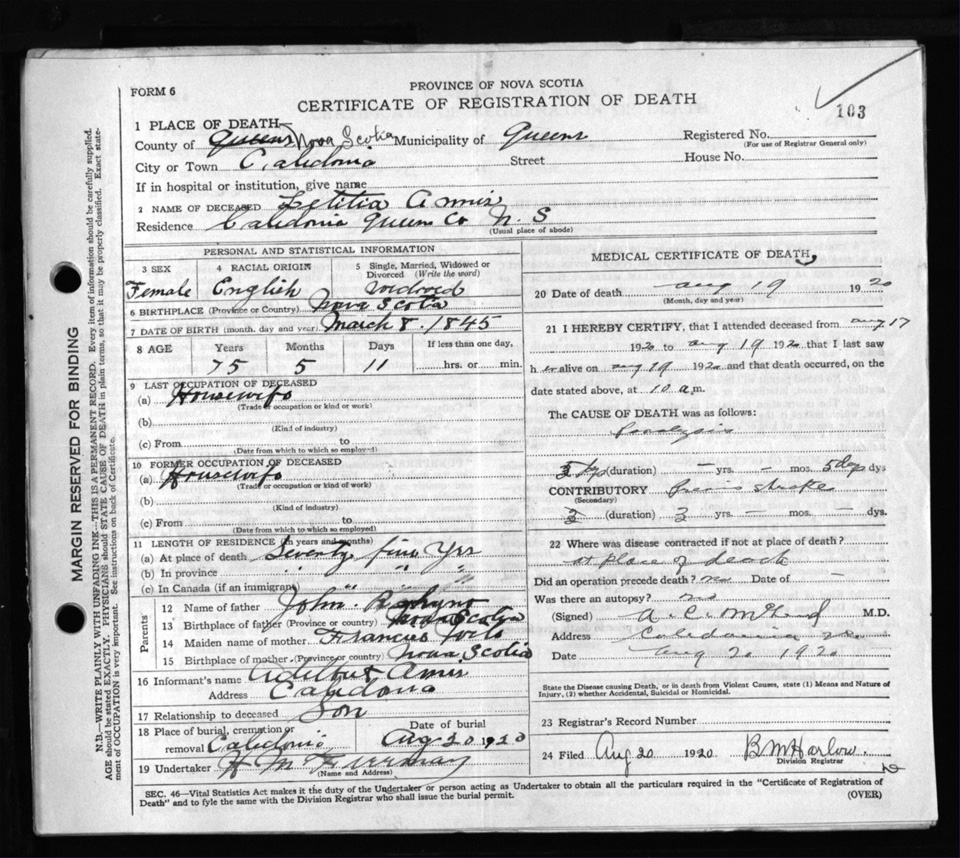 PROVINCE OF NOVA SCOTIA
FORM 6
CERTIFICATE OF REGISTRATION OF DEATH
103
1 PLACE OF DEATH—
County of Queens Nova Scotia Municipality of Queens Registered No.
(For use of Registrar General only)
City or Town Caledonia Street House No.
If in hospital or institution, give name
2 NAME OF DECEASED Letitia Annis
Residence Caledonia Queens Co N. S
(Usual place of abode)
PERSONAL AND STATISTICAL INFORMATION
3 SEX
Female
4 RACIAL ORIGIN
English
5 Single, Married, Widowed or Divorced (Write the word)
Widowed
6 BIRTHPLACE (Province or Country) Nova Scotia
7 DATE OF BIRTH (month, day and year) March 8. 1845
8 AGE Years Months Days If less than one day,
75 5 11 hrs. or min.
9 LAST OCCUPATION OF DECEASED
(a) Housewife
(Trade or occupation or kind of work)
(b)
(Kind of industry)
(c) From to
(Date from which to which so employed)
10 FORMER OCCUPATION OF DECEASED
(a) Housewife
(Trade or occupation or kind of work)
(b)
(Kind of industry)
(c) From to
(Date from which to which so employed)
11 LENGTH OF RESIDENCE (in years and months)
(a) At place of death Seventy five Yrs
(b) In province " " "
(c) In Canada (if an immigrant) " " "
Parents
12 Name of father John
13 Birthplace of father (Province or country) Nova Scotia
14 Maiden name of mother Frances
15 Birthplace of mother (Province or country) Nova Scotia
16 Informant's name Annis
Address Caledonia
17 Relationship to deceased Son
18 Place of burial, cremation or removal Caledonia
Date of burial
Aug 20 1920
19 Undertaker H M
(Name and Address)
MEDICAL CERTIFICATE OF DEATH
20 Date of death Aug 19 1920
(Month, day and year)
21 I HEREBY CERTIFY, that I attended deceased from Aug 17
1920 to Aug 19 1920 that I last saw
h er alive on Aug 19 1920 and that death occurred, on the
date stated above, at 10 a.m.
The CAUSE OF DEATH was as follows:
Paralysis
(duration) – yrs. – mos. 5 days dys
CONTRIBUTORY Previous stroke
(Secondary)
(duration) 3 yrs. – mos. – dys.
22 Where was disease contracted if not at place of death?
at place of death
Did an operation precede death? no Date of –
Was there an autopsy? no
(Signed) A. C. M.D.
Address Caledonia
Date Aug 20 1920
State the Disease causing Death, or in death from Violent Causes, state (1) Means and Nature of Injury, (2) whether Accidental, Suicidal or Homicidal.
23 Registrar's Record Number
24 Filed Aug 20 1920 B M Harlow.
Division Registrar
SEC. 46—Vital Statistics Act makes it the duty of the Undertaker or person acting as Undertaker to obtain all the particulars required in the "Certificate of Registration of
Death" and to fyle the same with the Division Registrar who shall issue the burial permit.
(OVER)
MARGIN RESERVED FOR BINDING
N.B.—WRITE PLAINLY WITH UNFADING INK—THIS IS A PERMANENT RECORD. Every item of information should be carefully supplied.
AGE should be stated EXACTLY. PHYSICIANS should STATE CAUSE OF DEATH in plain terms, so that it may be properly classified. Exact state-
ment of OCCUPATION is very important. See instructions on back of Certificate.